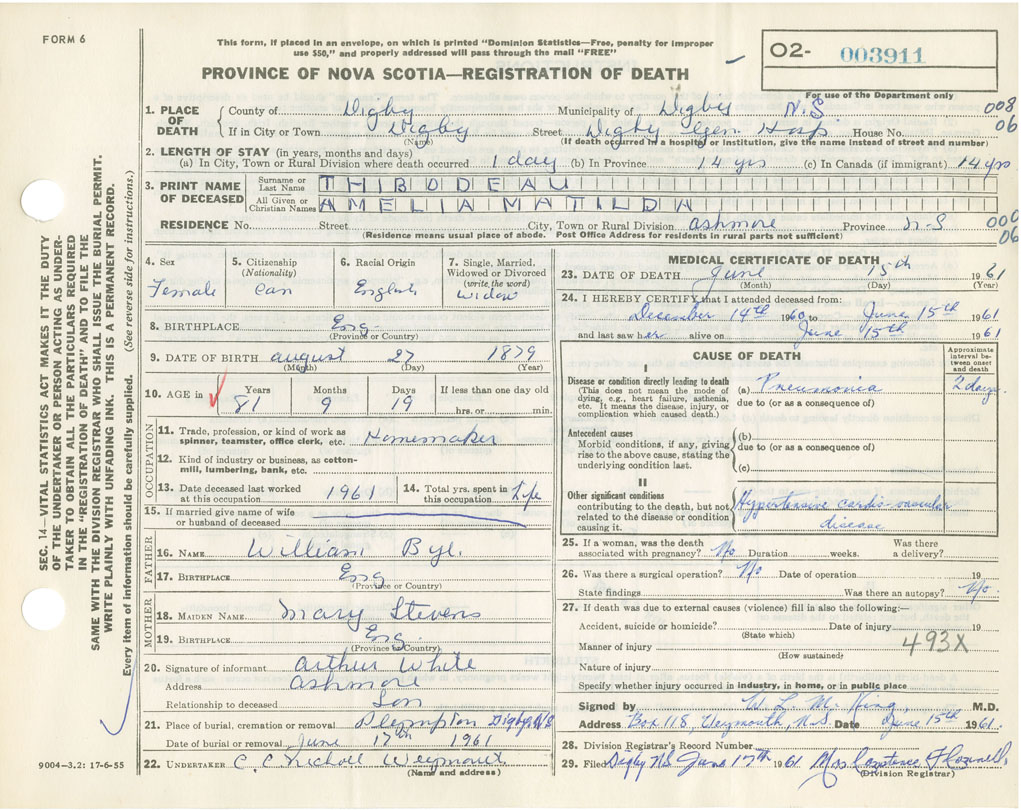 FORM 6
This form, if placed in an envelope, on which is printed "Dominion Statistics—Free, penalty for improper
use $50," and properly addressed will pass through the mail "FREE"
PROVINCE OF NOVA SCOTIA—REGISTRATION OF DEATH
O2- 003911
For use of the Department only
SEC. 14—VITAL STATISTICS ACT MAKES IT THE DUTY
OF THE UNDERTAKER OR PERSON ACTING AS UNDER-
TAKER TO OBTAIN ALL THE PARTICULARS REQUIRED
IN THE "REGISTRATION OF DEATH" AND TO FILE THE
SAME WITH THE DIVISION REGISTRAR WHO SHALL ISSUE THE BURIAL PERMIT.
WRITE PLAINLY WITH UNFADING INK. THIS IS A PERMANENT RECORD.
Every item of information should be carefully supplied. (See reverse side for instructions.)
1. PLACE OF DEATH
County of Digby Municipality of Digby N.S. 008
If in City or Town Digby Street Digby Gen. Hosp. House No. 06
(Name) (If death occurred in a hospital or institution, give the name instead of street and number)
2. LENGTH OF STAY (in years, months and days)
(a) In City, Town or Rural Division where death occurred 1 day (b) In Province 14 yrs (c) In Canada (if immigrant) 14 yrs
3. PRINT NAME OF DECEASED
Surname or Last Name THIBODEAU
All Given or Christian Names AMELIA MATILDA
RESIDENCE No. Street City, Town or Rural Division Ashmore Province N-S 000
(Residence means usual place of abode. Post Office Address for residents in rural parts not sufficient) 06
4. Sex Female
5. Citizenship (Nationality) Can
6. Racial Origin English
7. Single, Married, Widowed or Divorced (write the word) Widow
8. BIRTHPLACE Eng.
(Province or Country)
9. DATE OF BIRTH August 27 1879
(Month) (Day) (Year)
10. AGE in Years 81 Months 9 Days 19 If less than one day old hrs. or min.
OCCUPATION
11. Trade, profession, or kind of work as spinner, teamster, office clerk, etc. Homemaker
12. Kind of industry or business, as cotton-mill, lumbering, bank, etc.
13. Date deceased last worked at this occupation 1961
14. Total yrs. spent in this occupation Life
15. If married give name of wife or husband of deceased
FATHER
16. NAME William Bye.
17. BIRTHPLACE Eng
(Province or Country)
MOTHER
18. MAIDEN NAME Mary Stevens
19. BIRTHPLACE Eng.
(Province or Country)
20. Signature of informant Arthur White
Address Ashmore
Relationship to deceased Son
21. Place of burial, cremation or removal Plympton Digby, N.S
Date of burial or removal June 17th 1961
22. UNDERTAKER C. C. Nicholl Weymouth
(Name and address)
9004-3.2: 17-6-55
MEDICAL CERTIFICATE OF DEATH
23. DATE OF DEATH June 15th 1961
(Month) (Day) (Year)
24. I HEREBY CERTIFY that I attended deceased from:
December 14th 1960 to June 15th 1961
and last saw her alive on June 15th 1961
CAUSE OF DEATH
Approximate interval between onset and death
I
Disease or condition directly leading to death
(This does not mean the mode of dying, e.g., heart failure, asthenia, etc. It means the disease, injury, or complication which caused death.)
(a) Pneumonia 2 days
due to (or as a consequence of)
Antecedent causes
Morbid conditions, if any, giving rise to the above cause, stating the underlying condition last.
(b)
due to (or as a consequence of)
(c)
II
Other significant conditions
contributing to the death, but not related to the disease or condition causing it.
Hypertensive cardio-vascular
disease
25. If a woman, was the death associated with pregnancy? No Duration weeks. Was there a delivery?
26. Was there a surgical operation? No Date of operation 19
State findings Was there an autopsy? No.
27. If death was due to external causes (violence) fill in also the following:—
Accident, suicide or homicide? Date of injury 19
(State which)
Manner of injury 493X
(How sustained)
Nature of injury
Specify whether injury occurred in industry, in home, or in public place
Signed by W. L. M. King, M.D.
Address Box 118, Weymouth, N.S. Date June 15th 1961.
28. Division Registrar's Record Number
29. Filed Digby NS June 17th 1961 Mrs Constance
(Division Registrar)